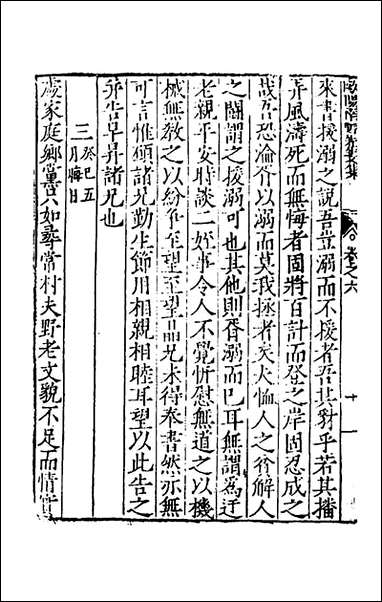 歐陽南野先生文集 卷之六 十一
來書援溺之說吾豈溺而不援者吾其豺乎若其播
弄風濤死而無悔者固將百計而登之岸固忍成之
哉吾恐淪胥以溺而莫我拯者矣夫恤人之窮解人
之鬬謂之援溺可也其他則胥溺而已耳無謂為迂
老親平安時談二姪事令人不覺忻慰無道之以機
械無教之以紛爭至望至望晶兄未得奉書然亦無
可言惟願諸兄勤生節用相親相睦耳望以此告之
并告早昇諸兄也
三 癸巳五月晦日
歲家庭鄉黨宜六如彞常村夫野老文貌不足而情實